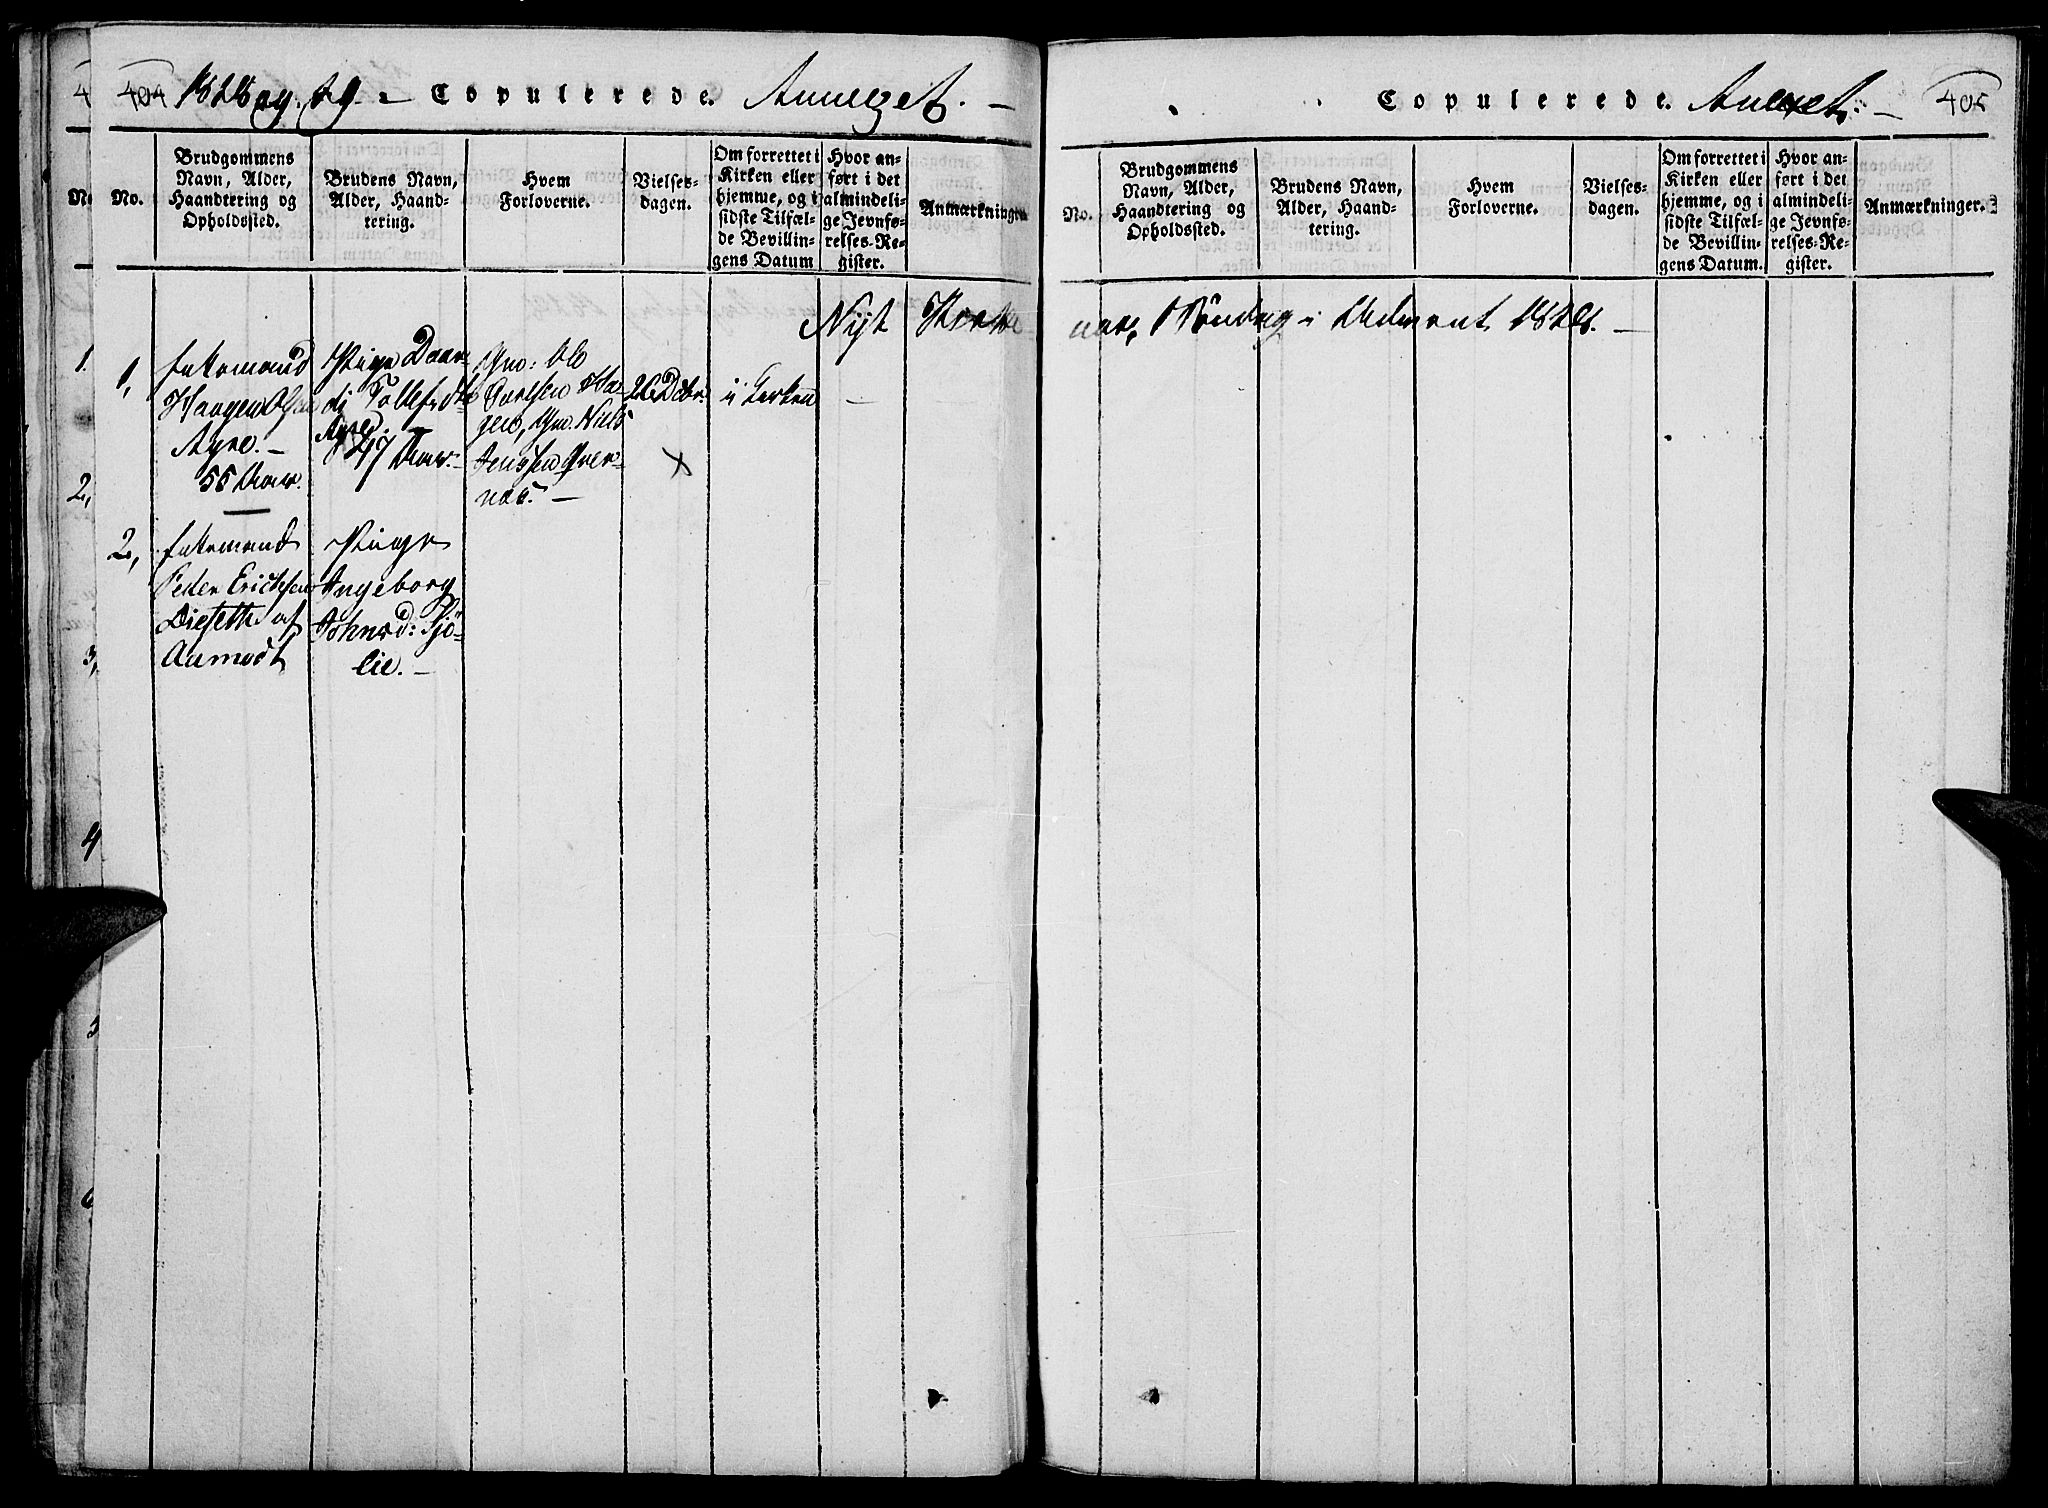 404 1828 og 29 - Copulerede. Annexet. -
No.
Brudgommens
Navn, Alder,
Haandtering og
Opholdssted.
Brudens Navn,
Alder, Haand-
tering.
Hvem
Forloverne.
Vielses-
dagen.
Om forrettet i
Kirken eller
hjemme, og i
sidste Tilfæl-
de Bevillin-
gens Datum
Hvor an-
ført i det
almindeli-
ge Jevnfø-
relses-Re-
gister.
Anmærkninger
Nyt Kirke
1,
Enkemand
Haagen Olsen
Agre. -
55 Aar.
Pige
Tollefsdtr
Agre
47 Aar. -
Gm: Ole
Ha-
gen, Gm. Niels
Jenssen Øver-
næs. -
26 Decbr.
x
i Kirken
-
2,
Enkemand
Peder Erichsen
Dieseth af
Aamodt
Pige
Ingeborg
Johnsd: Sjö-
lie. -
Copulerede. Annexet. - 405
No.
Brudgommens
Navn, Alder,
Haandtering og
Opholdssted.
Brudens Navn,
Alder, Haand-
tering.
Hvem
Forloverne.
Vielses-
dagen.
Om forrettet i
Kirken eller
hjemme, og i
sidste Tilfæl-
de Bevillin-
gens Datum.
Hvor an-
ført i det
almindeli-
ge Jevnfø-
relses-Re-
gister.
Anmærkninger.
aar, 1 Söndag i Advent 1828. -